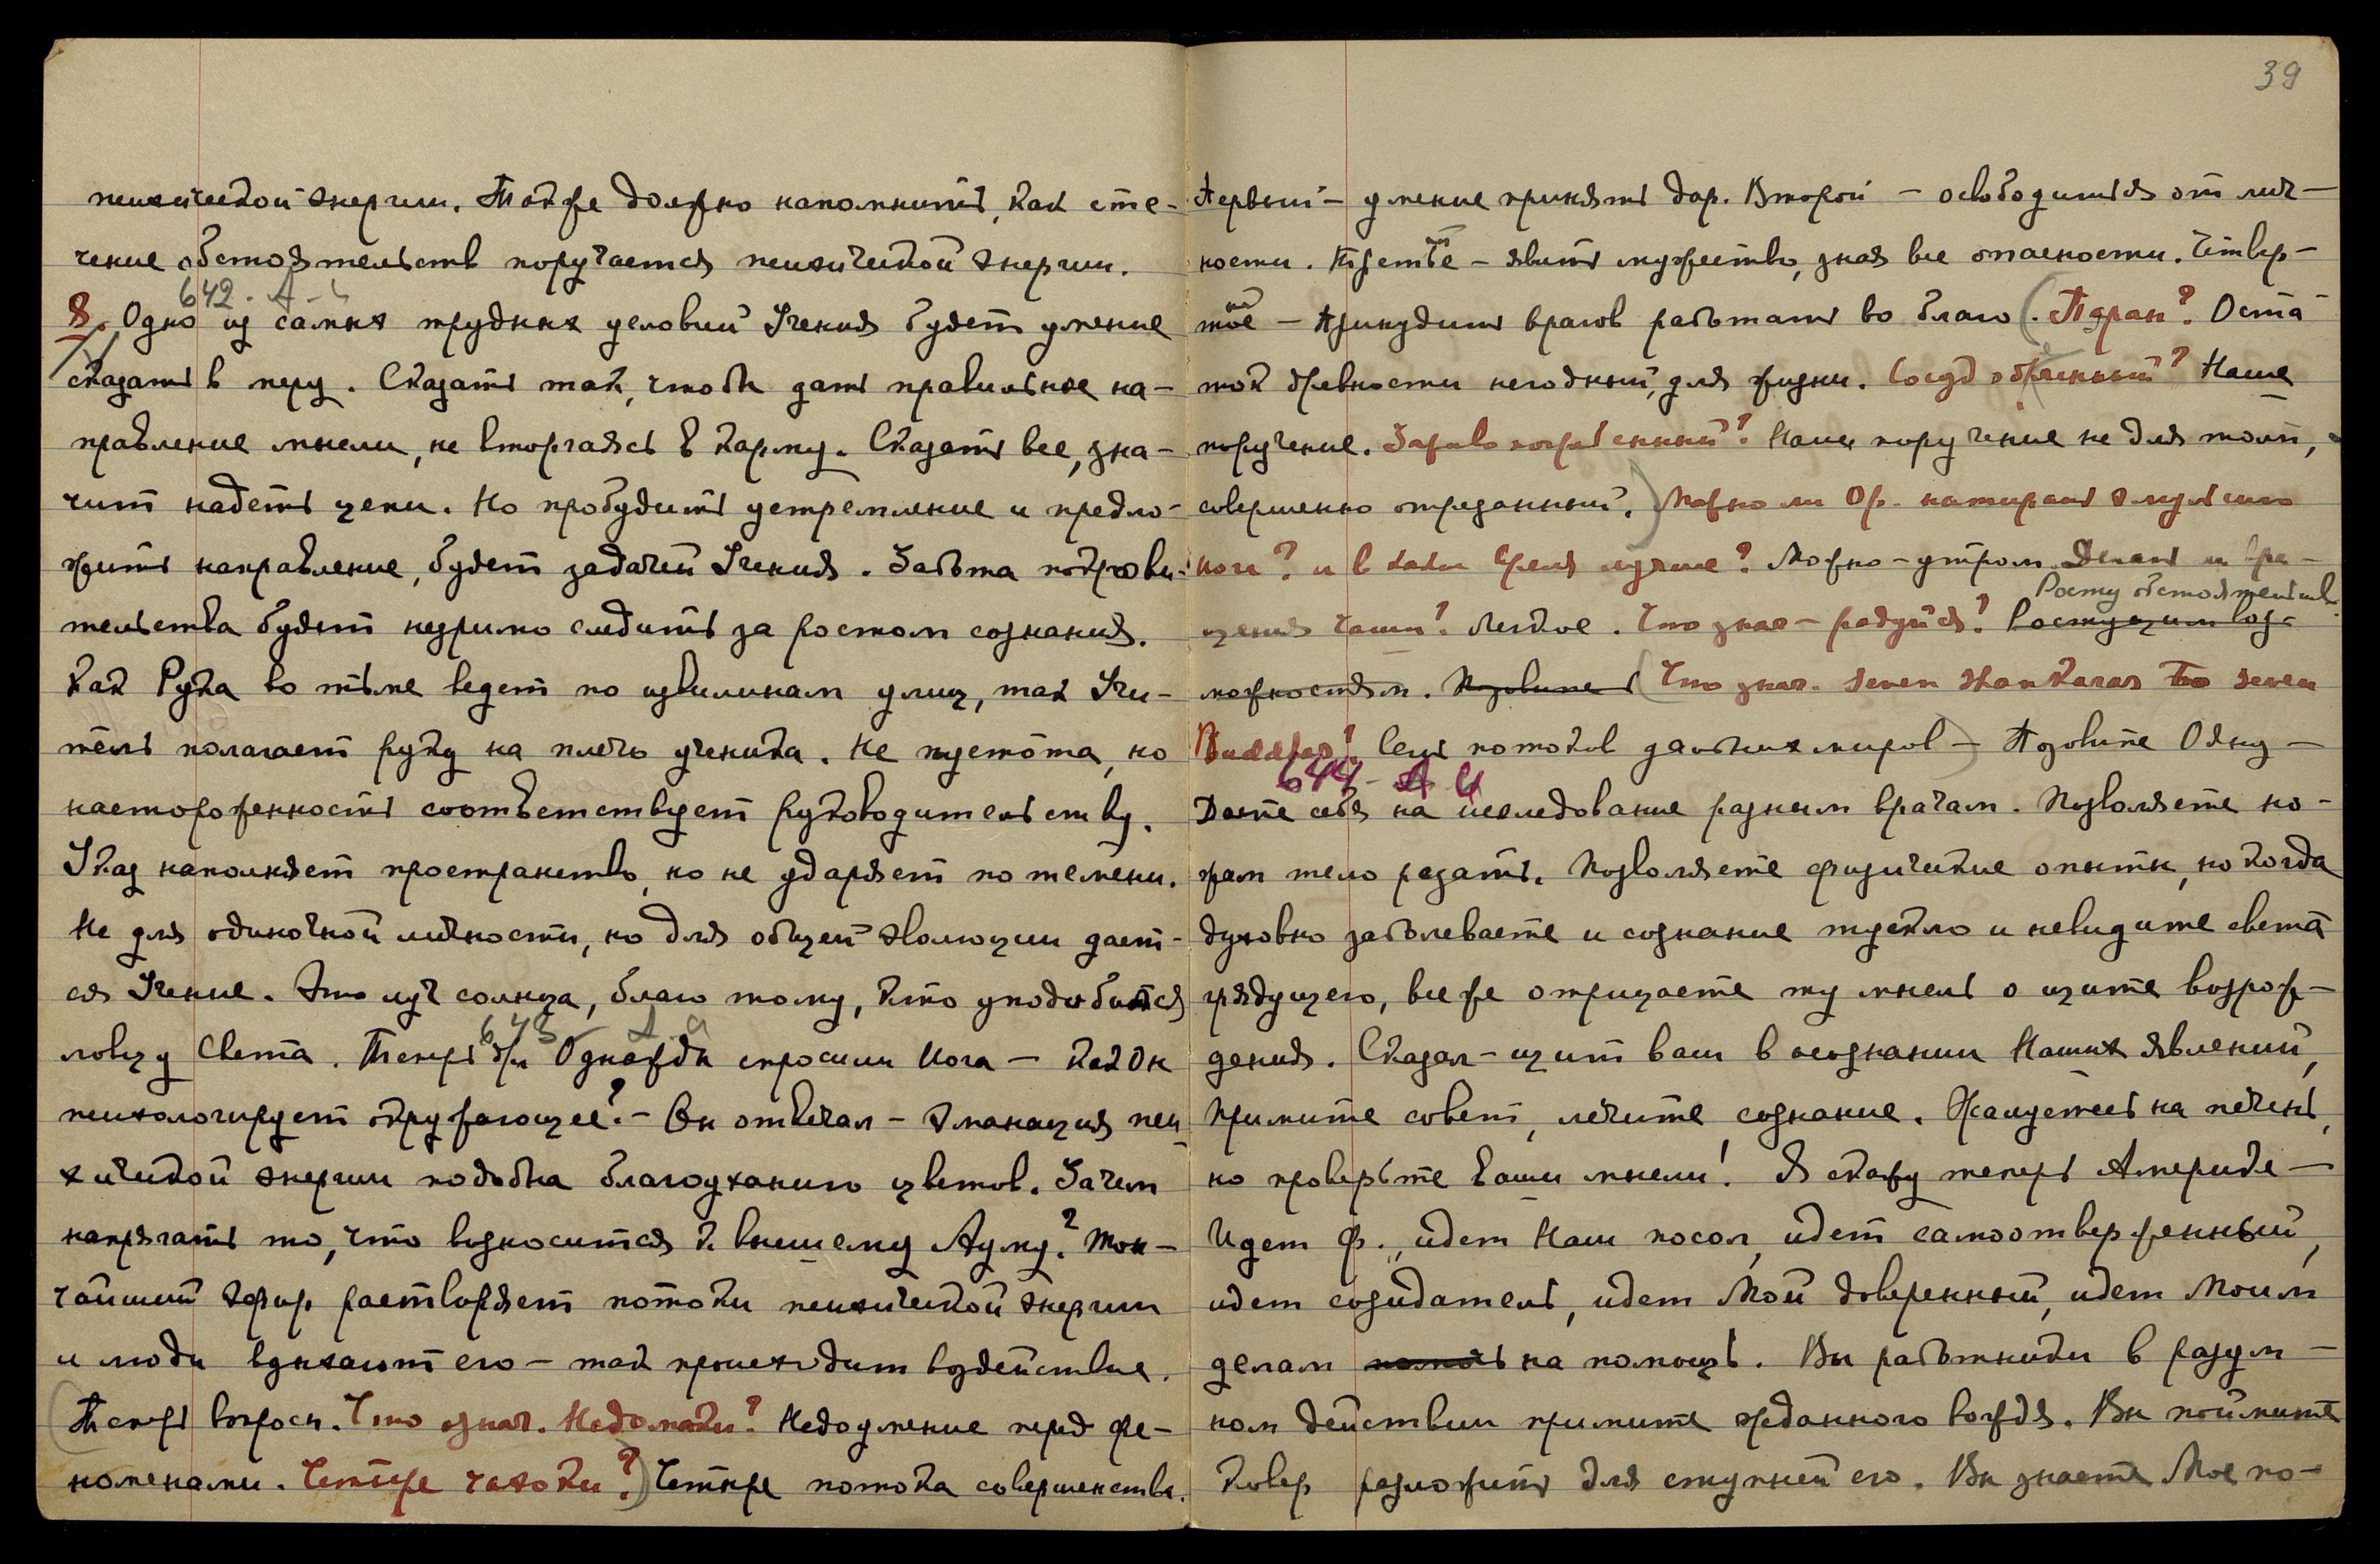 психической энергии. Также должно напомнить, как сте-
чение обстоятельств поручается психической энергии.
642 - А -
8. Одно из самых трудных условий Учения будет умение
сказать в меру. Сказать так, чтобы дать правильное на-
правление мысли, не вторгаясь в карму. Сказать все, зна-
чит надеть цепи. Но пробудить устремление и предло-
жить направление, будет задачей Учения. Забота покрови-
тельства будет незримо следить за ростом сознания.
Как Рука во тьме ведет по извилинам улиц, так Учи-
тель полагает руку на плечо ученика. Не пустота, но
настороженность соответствует руководительству.
Указ наполняет пространство, но не ударяет по темени.
Не для одиночной личности, но для общей эволюции дает-
ся Учение. Это луч солнца, благо тому, кто уподобится
643 - А
ловцу Света. Теперь др. Однажды спросили Йога - как Он
психологирует окружающее? - Он отвечал - эманация пси-
хической энергии подобна благоуханию цветов. Зачем
напрягать то, что возносится к высшему Ауму? Тон-
чайший эфир растворяет потоки психической энергии
и люди вдыхают его - так происходит воздействие.
(Теперь вопросы. Что означ. Недомоки? Недоумение перед фе-
номенами. Четыре чахоки?) Четыре потока совершенства.
39
Первый - умение принять дар. Второй - освободиться от лич-
ности. Третье - явить мужество, зная все опасности. Четвер-
тое - принудить врагов работать во благо (. Тиран? Оста-
ток древности негодный для жизни. Сосуд Наше
поручение. Наше поручение не для толп,
совершенно отрезанный.) Можно ли Ор. натирать эмульсию
ноги? и в какое время лучше? Можно - утром. вра-
щения чаши? Легкое. Что знае - радуйся? Росту обстоятельств.
Растущим воз-
можностям. (Что знач. seven seven
Buddhas? Семь потоков дальних миров) - Позовите Одну -
644 - А
Даете себя на исследование разным врачам. Позволяете но-
жам тело резать. Позволяете физические опыты, но когда
духовно заболеваете и сознание тускло и не видите света
грядущего, все же отрицаете ту мысль о щите возрож-
дения. Сказал - щит ваш в осознании Наших явлений,
примите совет, лечите сознание. Жалуетесь на печень,
но проверьте ваши мысли! Я скажу теперь Америке -
Идет Ф., идет Наш посол, идет самоотверженный,
идет созидатель, идет Мой доверенный, идет Моим
делам на помощь. Вы работники в разум-
ном действии примите жданного вождя. Вы поймите
ковер разложить для ступней его. Вы знаете Мое по-